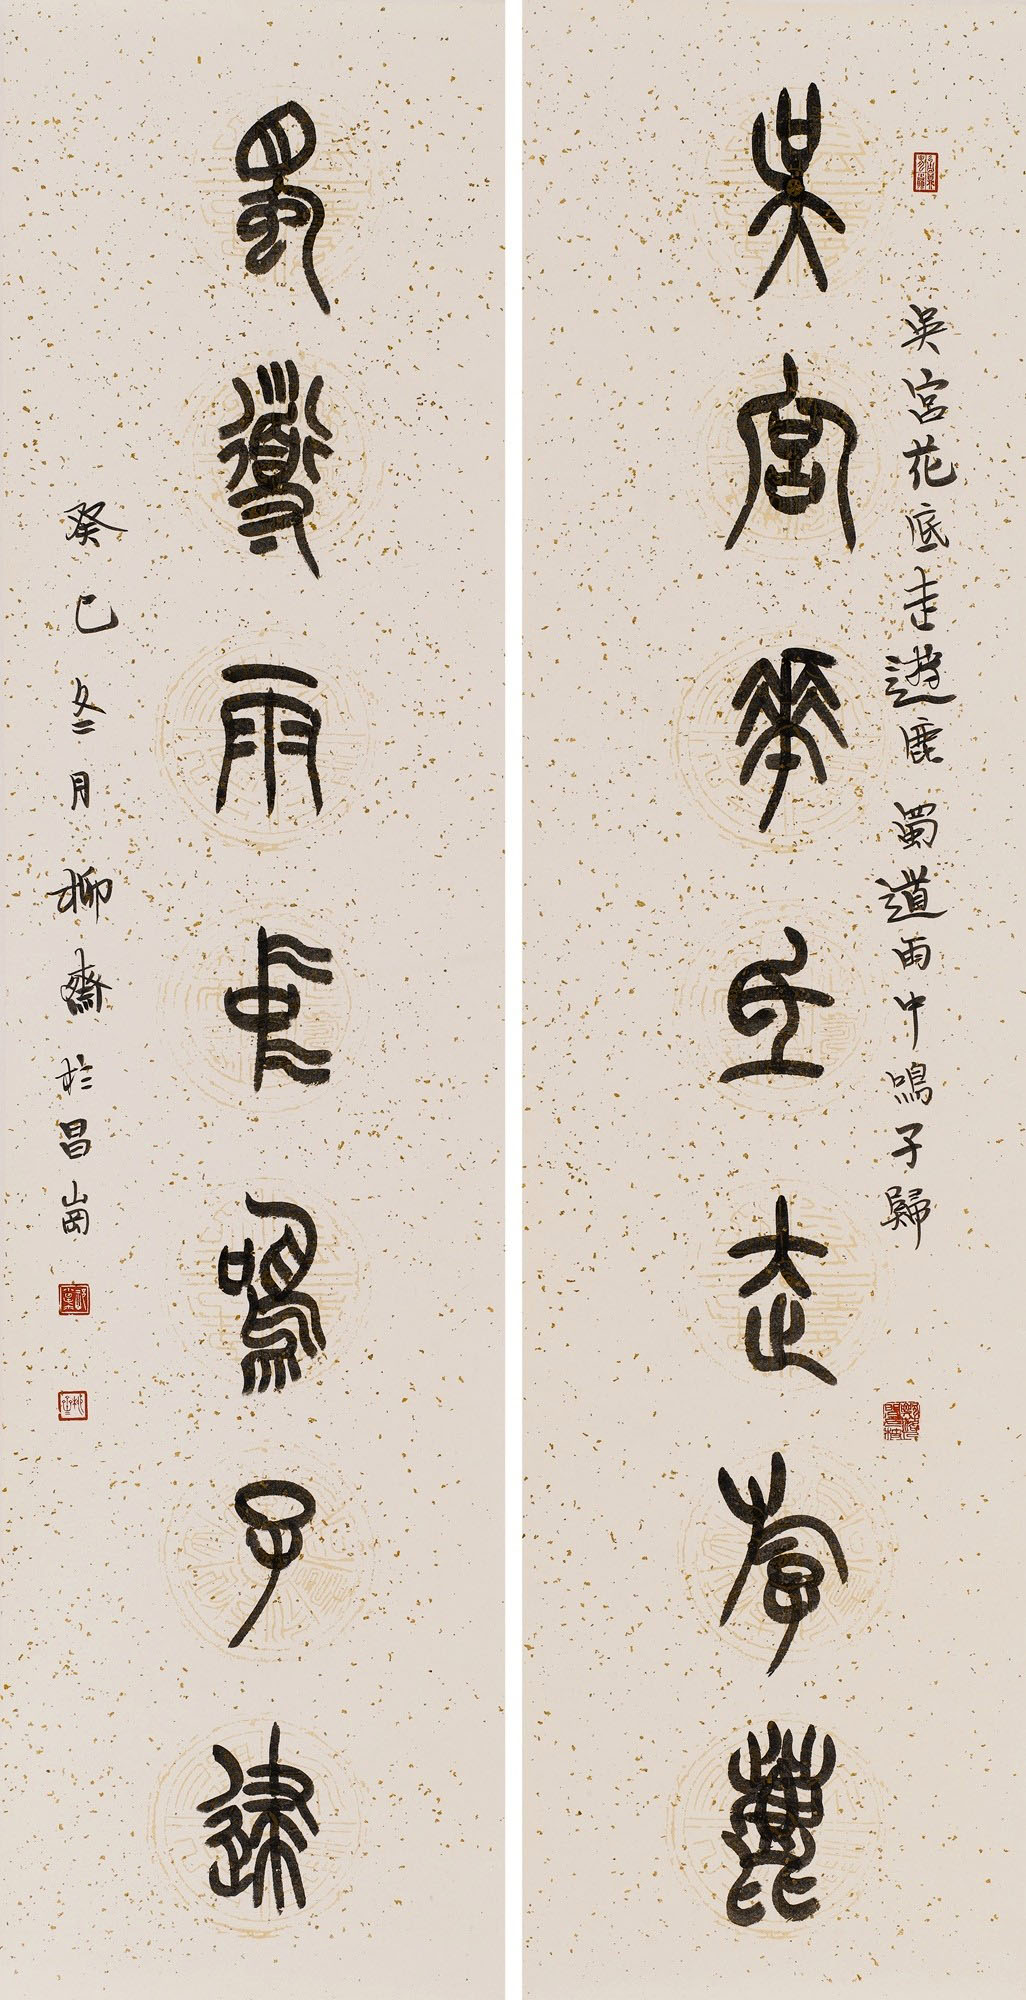 吳宮華底走游鹿
吳宮花底走遊鹿 蜀道雨中鳴子歸
蜀道雨中鳴子歸
癸巳冬月柳齋於昌崗